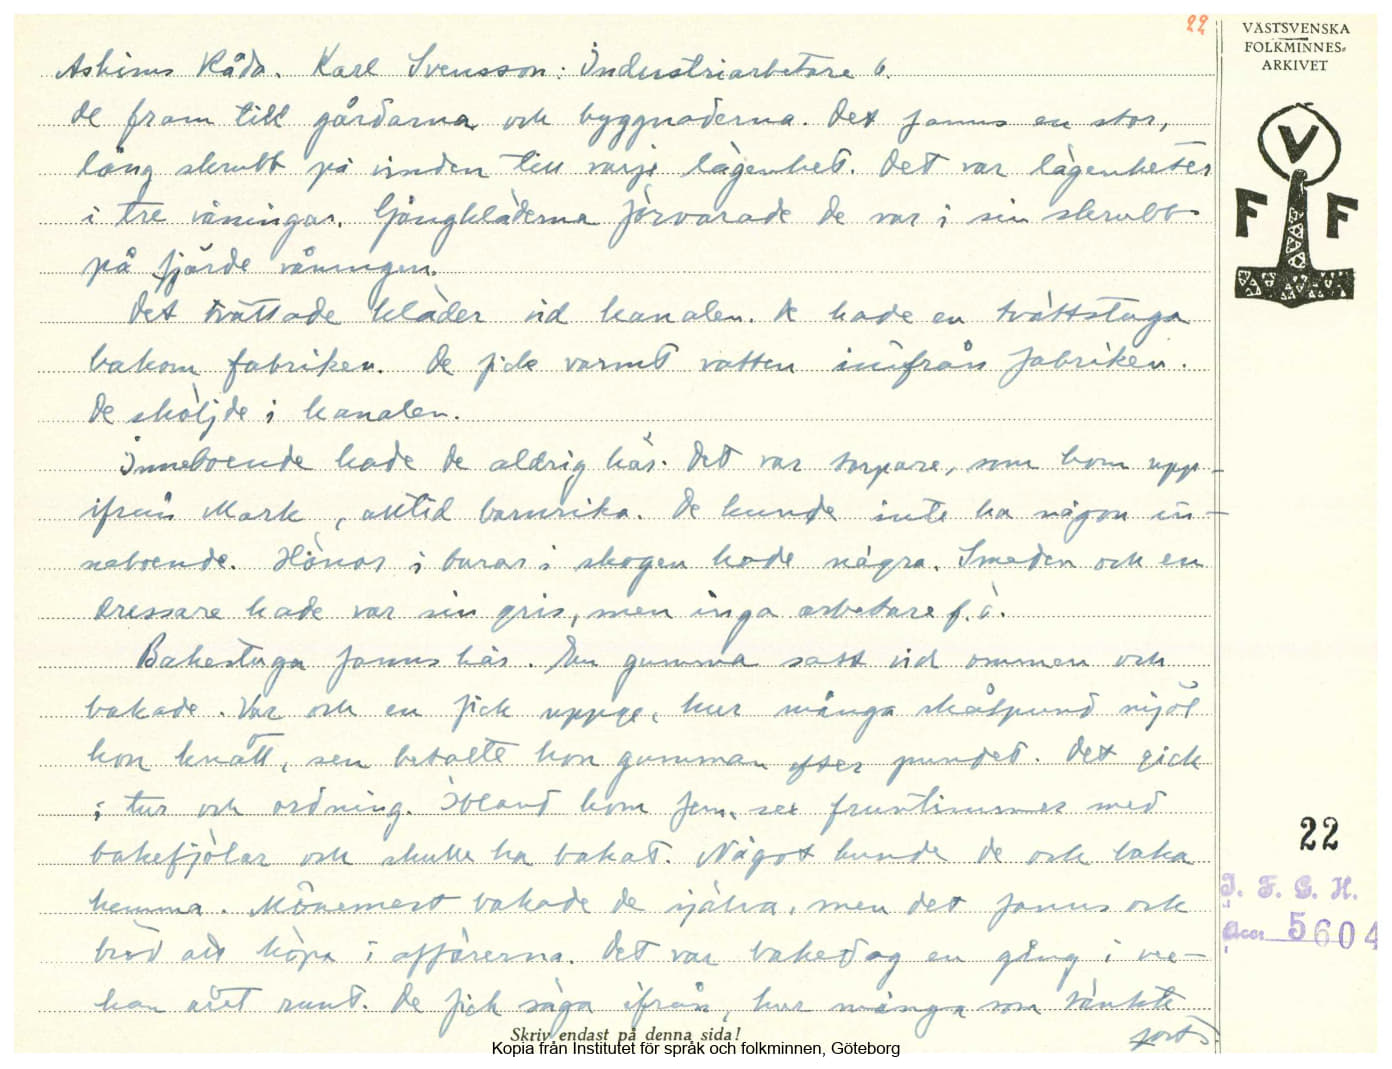 22
VÄSTSVENSKA
FOLKMINNES-
ARKIVET
Askims Råda. Karl Svensson: Industriarbetare 6.
de fram till gårdarna och byggnaderna. Det fanns en stor,
lång skrubb på vinden till varje lägenhet. Det var lägenheter
i tre våningar. Gångkläderna förvarade de var i sin skrubb
på fjärde våningen.
Det tvättade kläder vid kanalen. De hade en tvättstuga
bakom fabriken. De fick varmt vatten inifrån fabriken.
De sköljde i kanalen.
Inneboende hade de aldrig här. Det var torpare, som kom upp-
ifrån Mark, alltid barnrika. De kunde inte ha någon in-
neboende. Hönor i burar i skogen hade några. Smeden och en
dressare hade var sin gris, men inga arbetare f. ö.
Bakestuga fanns här. En gumma satt vid ommen och
bakade. Var och en fick uppge, hur många skålpund mjöl
hon knått, sen betalte hon gumman efter pundet. Det gick
i tur och ordning. Ibland kom fem, sex fruntimmer med
bakefjölar och skulle ha bakat. Något kunde de och baka
hemma. Mönemest bakade de själva, men det fanns och
bröd att köpa i affärerna. Det var bakedag en gång i vec-
kan året runt. De fick säga ifrån, hur många som tänkte
forts.
V
F F
22
I. F. G. H.
Acc. 5604
Skriv endast på denna sida!
Kopia från Institutet för språk och folkminnen, Göteborg